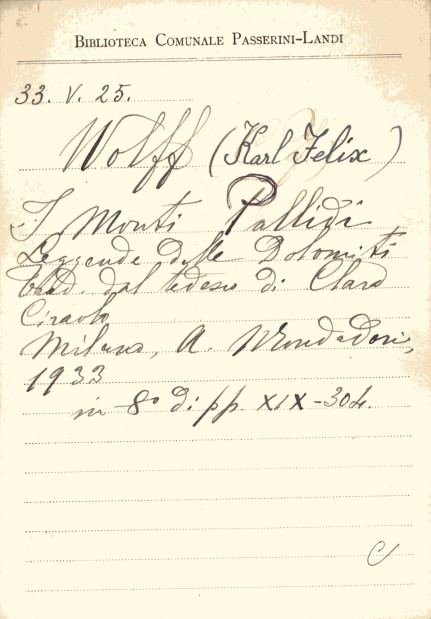 BIBLIOTECA COMUNALE PASSERINI-LANDI
33. V. 25.
Wolff (Karl Felix)
I Monti Pallidi
Leggende delle Dolomiti
Trad. dal tedesco di Clara
Ciraolo
Milano, A. Mondadori,
1933
in -8° di pp. XIX-304.
C